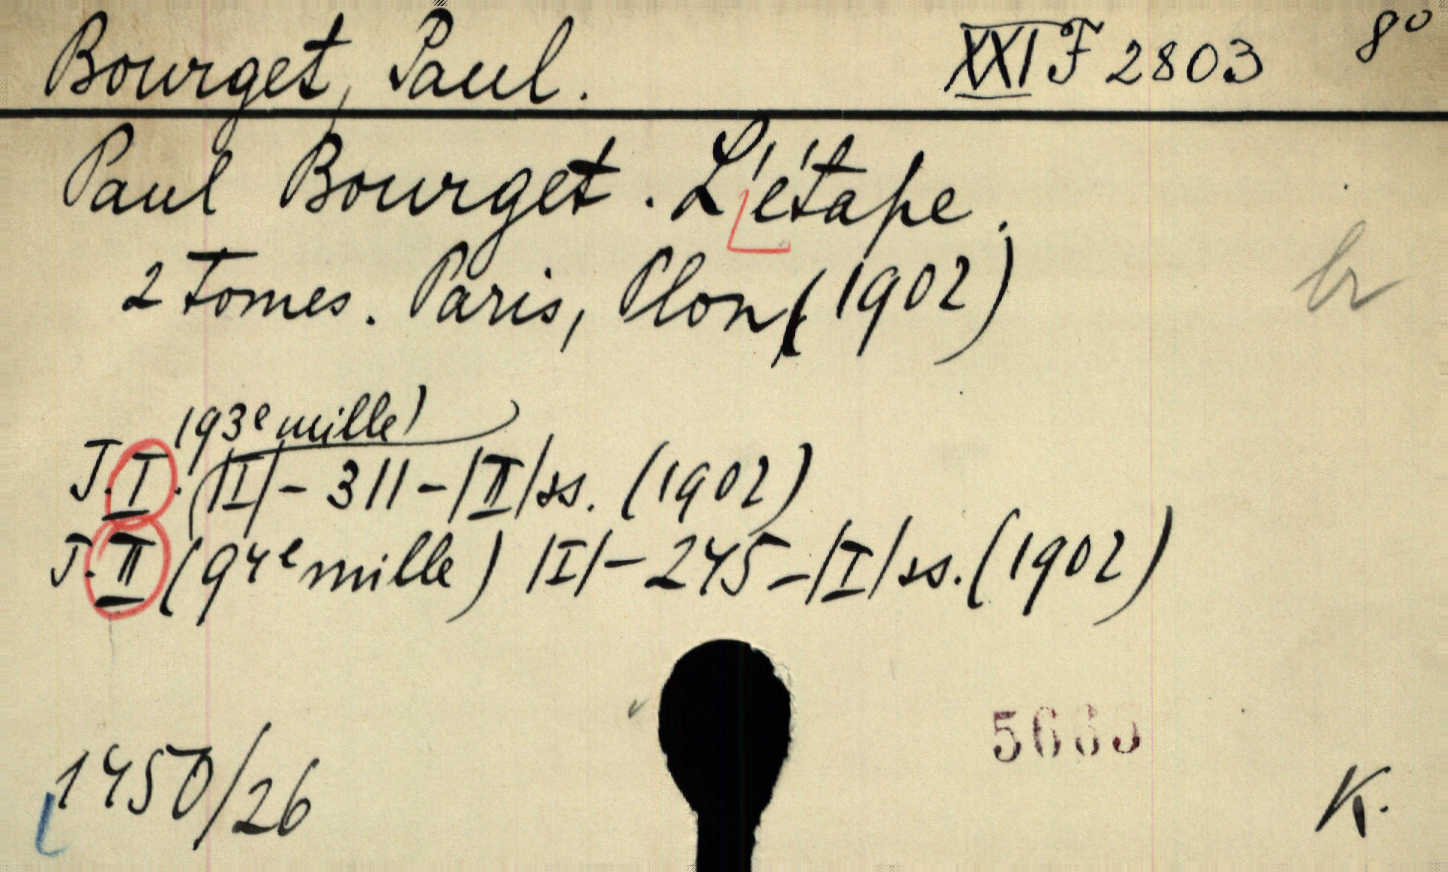 Bourget, Paul. XXI F 2803 8°
Paul Bourget. L'étape.
2 Tomes. Paris, Plon (1902)
(93e mille)
T. I. |II| - 311 - |II| ss. (1902)
T. II (94e mille) |I| - 245 - |I| ss. (1902)
1450/26
K.